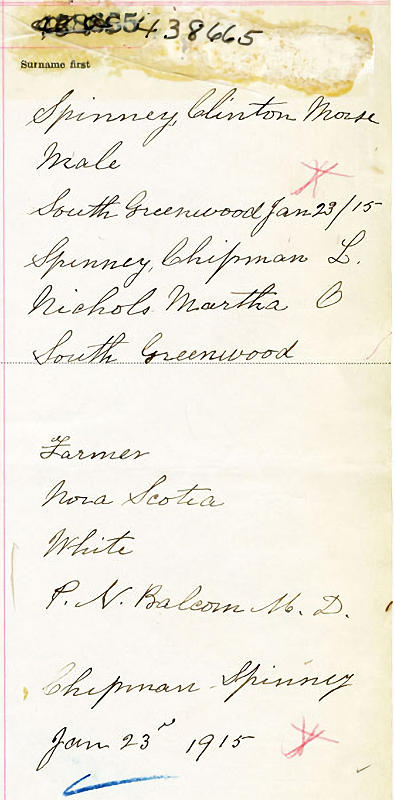 438665
Surname first
Spinney, Clinton Morse
Male
South Greenwood Jan 23/15
Spinney, Chipman L.
Nichols Martha O
South Greenwood
Farmer
Nova Scotia
White
P. N. Balcom M. D.
Chipman Spinney
Jan 23rd 1915